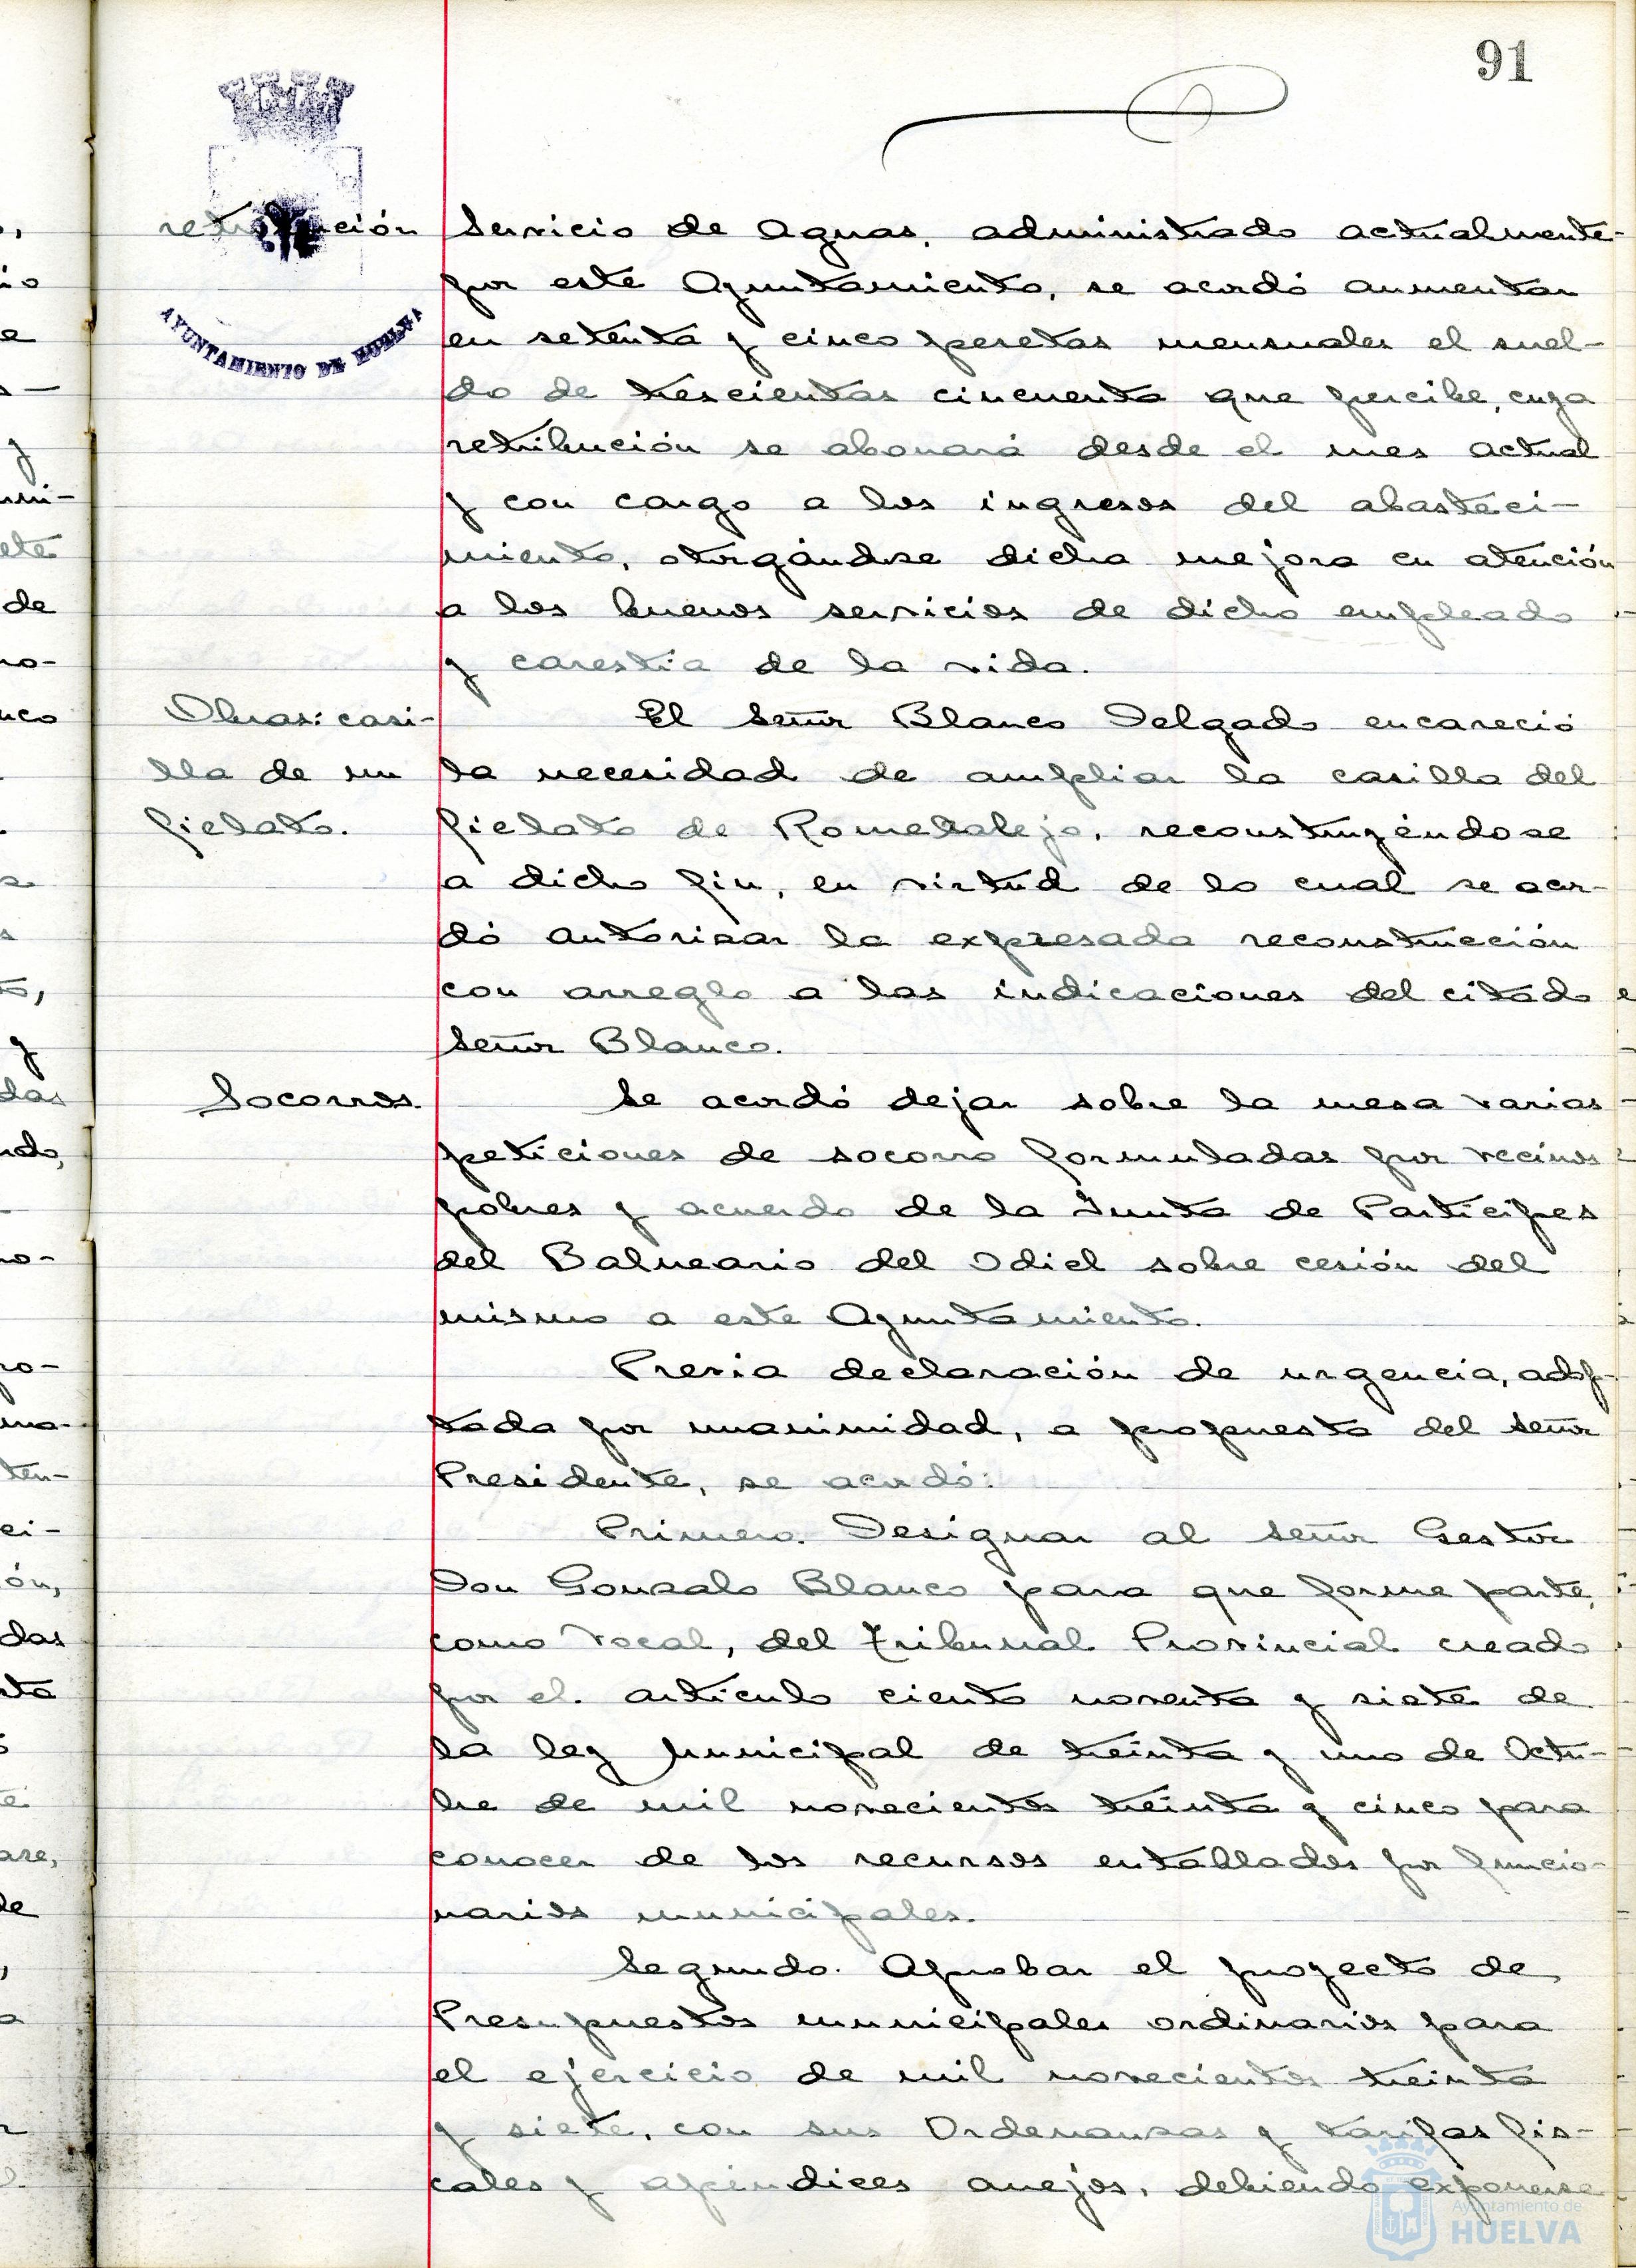 91
retribución
Servicio de Aguas, administrado actualmente
por este Ayuntamiento, se acordó aumentar
AYUNTAMIENTO DE HUELVA
en setenta y cinco pesetas mensuales el suel-
do de trescientas cincuenta que percibe, cuya
retribución se abonará desde el mes actual
y con cargo a los ingresos del abasteci-
miento, otorgándose dicha mejora en atención
a los buenos servicios de dicho empleado
y carestía de la vida.
Obras: casi-
lla de un
fielato.
El Señor Blanco Delgado encareció
la necesidad de ampliar la casilla del
fielato de Romeralejo, reconstruyéndose
a dicho fin, en virtud de lo cual se acor-
dó autorizar la expresada reconstrucción
con arreglo a las indicaciones del citado
Señor Blanco.
Socorros.
Se acordó dejar sobre la mesa varias
peticiones de socorro formuladas por vecinos
pobres y acuerdo de la Junta de Partícipes
del Balneario del Odiel sobre cesión del
mismo a este Ayuntamiento.
Previa declaración de urgencia, adop-
tada por unanimidad, a propuesta del Señor
Presidente, se acordó:
Primero. Designar al Señor Gestor
Don Gonzalo Blanco para que forme parte,
como vocal, del Tribunal Provincial creado
por el artículo ciento noventa y siete de
la ley Municipal de treinta y uno de Octu-
bre de mil novecientos treinta y cinco para
conocer de los recursos entablados por funcio-
narios municipales.
Segundo. Aprobar el proyecto de
Presupuestos municipales ordinarios para
el ejercicio de mil novecientos treinta
y siete, con sus Ordenanzas y tarifas fis-
cales y apéndices anejos, debiendo exponerse
Ayuntamiento de
HUELVA